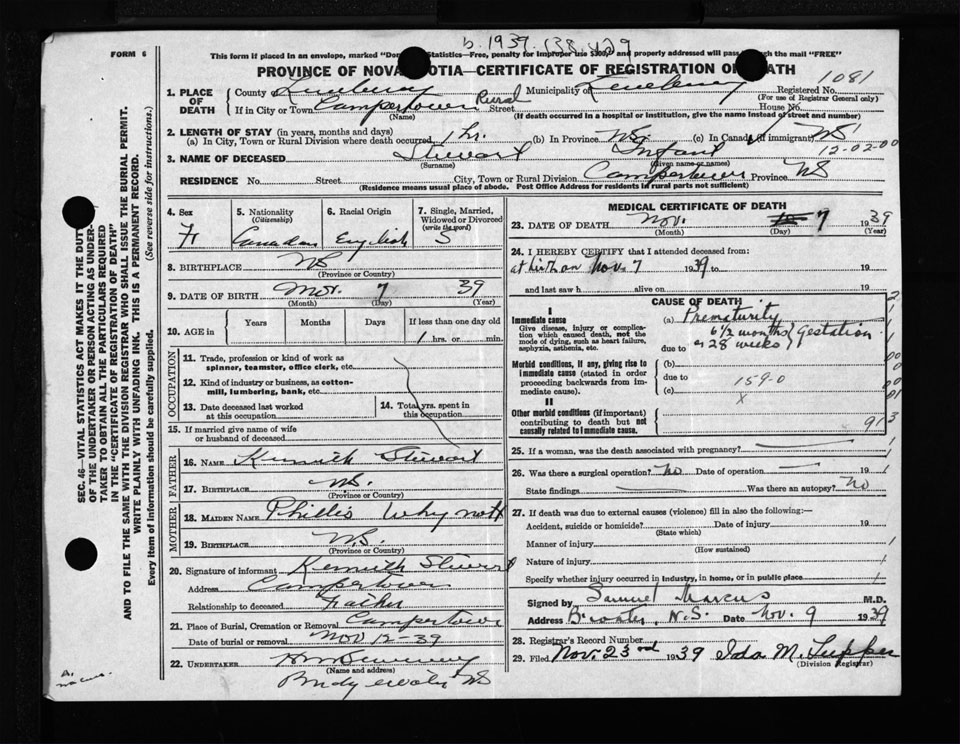 b. 1939. 138.429
FORM 6
This form if placed in an envelope, marked "Dom Statistics—Free, penalty for improper use $300," and properly addressed will pass through the mail "FREE"
PROVINCE OF NOVA SCOTIA—CERTIFICATE OF REGISTRATION OF DEATH
1081
1. PLACE OF DEATH
County Lunenburg Municipality of Lunenburg Registered No.
(For use of Registrar General only)
If in City or Town Camperdown Rural Street House No.
(Name) (If death occurred in a hospital or Institution, give the name instead of street and number)
2. LENGTH OF STAY (in years, months and days)
(a) In City, Town or Rural Division where death occurred 1 hr. (b) In Province NS. (c) In Canada (if immigrant) NS
12-02-00
3. NAME OF DECEASED Stewart Infant
(Surname) (Given name or names)
RESIDENCE No. Street City, Town or Rural Division Camperdown Province NS
(Residence means usual place of abode. Post Office Address for residents in rural parts not sufficient)
4. Sex F
5. Nationality (Citizenship) Canadian
6. Racial Origin English
7. Single, Married, Widowed or Divorced (write the word) S
8. BIRTHPLACE NS
(Province or Country)
9. DATE OF BIRTH Nov. 7 39
(Month) (Day) (Year)
10. AGE in Years Months Days If less than one day old
1 hrs. or min.
OCCUPATION
11. Trade, profession or kind of work as spinner, teamster, office clerk, etc.
12. Kind of industry or business, as cotton-mill, lumbering, bank, etc.
13. Date deceased last worked at this occupation
14. Total yrs. spent in this occupation
15. If married give name of wife or husband of deceased
FATHER
16. NAME Kenneth Stewart
17. BIRTHPLACE NS.
(Province or Country)
MOTHER
18. MAIDEN NAME Phillis Whynott
19. BIRTHPLACE N.S.
(Province or Country)
20. Signature of informant Kenneth Stewart
Address Camperdown
Relationship to deceased Father
21. Place of Burial, Cremation or Removal Camperdown
Date of burial or removal Nov 12-39
22. UNDERTAKER
(Name and address)
NS
MEDICAL CERTIFICATE OF DEATH
23. DATE OF DEATH Nov. 7 1939
(Month) (Day) (Year)
24. I HEREBY CERTIFY that I attended deceased from:
at birth on Nov. 7 1939 to 19
and last saw h alive on 19
CAUSE OF DEATH
I
Immediate cause
Give disease, injury or complication which caused death, not the mode of dying, such as heart failure, asphyxia, asthenia, etc.
(a) Prematurity
6½ months gestation
due to 28 weeks
Morbid conditions, if any, giving rise to immediate cause (stated in order proceeding backwards from immediate cause)
(b)
due to 159-0
(c) x
II
Other morbid conditions (if important) contributing to death but not causally related to immediate cause.
91
25. If a woman, was the death associated with pregnancy?
26. Was there a surgical operation? No Date of operation 19
State findings Was there an autopsy? No
27. If death was due to external causes (violence) fill in also the following:—
Accident, suicide or homicide? Date of injury 19
(State which)
Manner of injury
(How sustained)
Nature of injury
Specify whether injury occurred in industry, in home, or in public place
Signed by Samuel Marcus M.D.
Address N.S. Date Nov. 9 1939
28. Registrar's Record Number
29. Filed Nov. 23rd 1939 Ida M. Tupper
(Division Registrar)
SEC. 46—VITAL STATISTICS ACT MAKES IT THE DUTY
OF THE UNDERTAKER OR PERSON ACTING AS UNDER-
TAKER TO OBTAIN ALL THE PARTICULARS REQUIRED
IN THE "CERTIFICATE OF REGISTRATION OF DEATH"
AND TO FILE THE SAME WITH THE DIVISION REGISTRAR WHO SHALL ISSUE THE BURIAL PERMIT.
WRITE PLAINLY WITH UNFADING INK. THIS IS A PERMANENT RECORD.
Every item of Information should be carefully supplied. (See reverse side for instructions.)